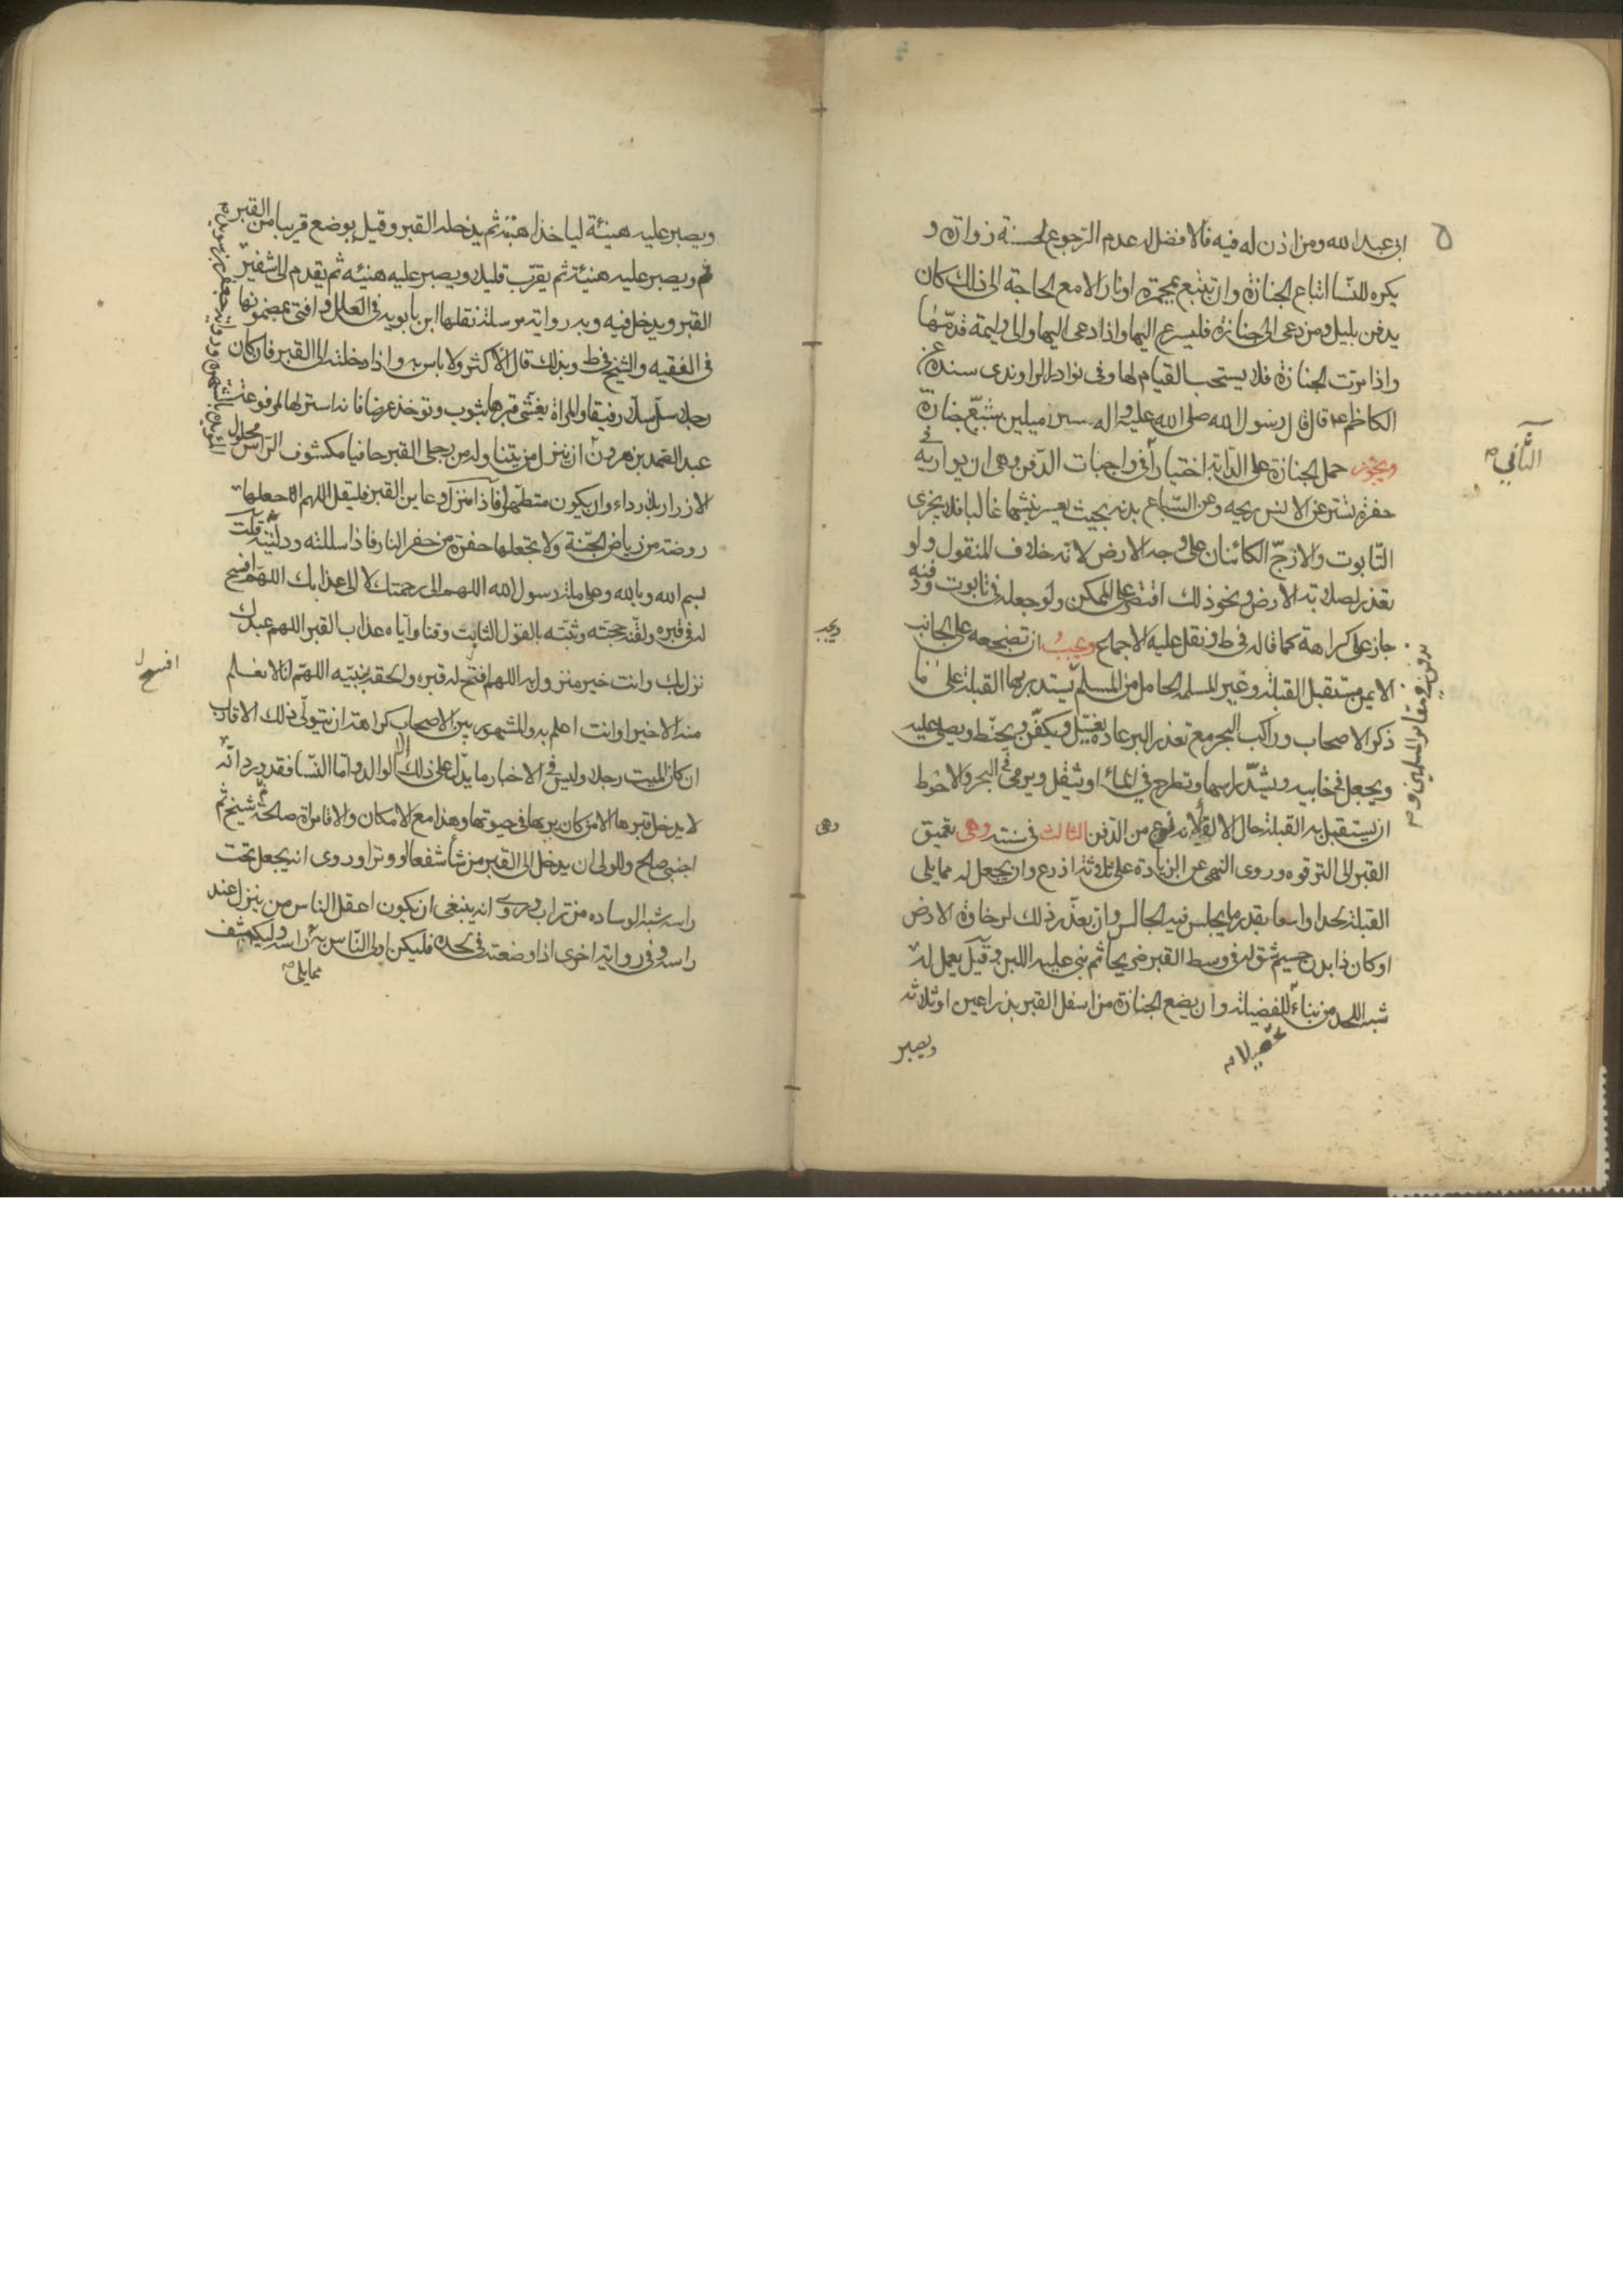 ابى عبد الله ومن اذن له فيه فالافضل له عدم الرجوع لحسنة زرارة و
يكره للنسا اتباع الجنازة وان تتبع بمجمرة او نار الا مع الحاجة الى ذلك كان
يدفن بليل ومن دعى الى جنازة فليسرع اليها واذا دعى اليها والى وليمة قدمها
واذا مرت الجنازة فلا يستحب القيام لها وفى نوادر الراوندى بسنده عن
الكاظم ع قال قال رسول الله صلى الله عليه واله سر ميلين شيع جنازة
ويجوز حمل الجنازة على الدابة اختيارا فى واجبات الدفن وهى ان يواريه فى
الثانى
حفرة تستر عن الانس ريحه وعن السباع بدنه بحيث يعسر نبشها غالبا فلا يجزى
التابوت والازج الكائنان على وجه الارض لانه خلاف المنقول ولو
تعذر لصلابة الارض ونحو ذلك اقتصر على الممكن ولو جعله فى تابوت ودفنه
جاز على كراهة كما قاله فى ط ونقل عليه الاجماع ويجب ان تضجعه على الجانب
ويجب
الايمن مستقبل القبلة وغير المسلمة الحامل من المسلم يستدبر بها القبلة على ما
يدفن فى مقابر المسلمين و
ذكر الاصحاب وراكب البحر مع تعذر البر عادة يغسل ويكفن ويحنط ويصلى عليه
ويجعل فى خابيه ويشد راسها وتطرح فى الماء او يثقل ويرمى فى البحر والاحوط
ان يستقبل به القبلة حال الالقا لانه نوع من الدفن الثالث فى سننه وهى تعميق
وهى
القبر الى الترقوه وروى النهى عن الزيادة على ثلاثة اذرع وان يجعل له مما يلى
القبلة لحدا واسعا بقدر ما يجلس فيه الجالس وان تعذر ذلك لرخاوة الارض
او كان ذا بدن جسيم شق له فى وسط القبر ضريحا ثم بنى عليه اللبن وقيل يعمل له
شبه اللحد من بناء تحصيلا للفضيلة وان يضع الجنازة من اسفل القبر بذراعين او ثلاثه
ويصبر
ويصبر عليه هنيئة لياخذ اهبته ثم يدخله القبر وقيل يوضع قريبا من القبر
ثم ويصبر عليه هنيئة ثم يقرب قليلا ويصبر عليه هنيئه ثم يقدم الى شفير
القبر ويدخل فيه وبه رواية مرسلة نقلها ابن بابويه فى العلل وافتى بمضمونها
فى الفقيه والشيخ فى ط وبذلك قال الاكثر ولا باس به واذا دخلته الى القبر فان كان
رجلا سل سلا رفيقا والمراة يغشى قبرها بثوب وتوخذ عرضا فانه استر لها لمرفوعة
عبد الصمد بن هرون ان ينزل من يتناوله من رجلى القبر حافيا مكشوف الراس محلول
الازرار بلا رداء وان يكون متطهرا فاذا نزل وعاين القبر فليقل اللهم اجعلها
روضة من رياض الجنة ولا تجعلها حفرة من حفر النار فاذا سللته ودليته قلت
بسم الله وبالله وعلى ملة رسول الله اللهم الى رحمتك لا الى عذابك اللهم افسح
له فى قبره ولقنه حجته وثبته بالقول الثابت وقنا واياه عذاب القبر اللهم عبدك
نزل بك وانت خير منزول به اللهم افتح له قبره والحقه بنبيه اللهم انا لا نعلم
افسح ل
منه الا خيرا وانت اعلم به والمشهور بين الاصحاب كراهة ان يتولى ذلك الاقارب
ان كان الميت رجلا وليس فى الاخبار ما يدل على ذلك الا الوالد واما النسا فقد ورد انه
لا يدخل قبرها الا من كان يراها فى حيوتها وهذا مع الامكان والا فامراة صالحة ثم شيخ ثم
اجنبى صالح وللولى ان يدخل الى القبر من شاء شفعا او وترا وروى انه يجعل تحت
راسه شبه الوساده من تراب وروى انه ينبغى ان يكون اعقل الناس من ينزل عند
راسه وفى رواية اخرى اذا وضعته فى لحده فليكن اولى الناس به مما يلى راسه وليكشف